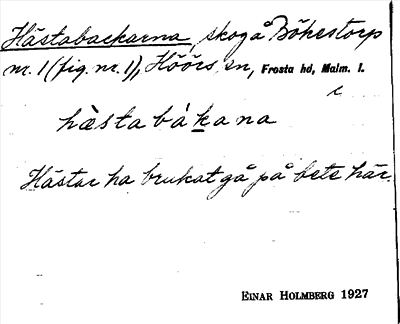 Hästabackarna, skog å Bökestorp
nr. 1 (fig. nr. 1), Höörs sn, Frosta hd, Malm. l.
hæ̀stabákana
Hästar ha brukat gå på bete här.
EINAR HOLMBERG 1927